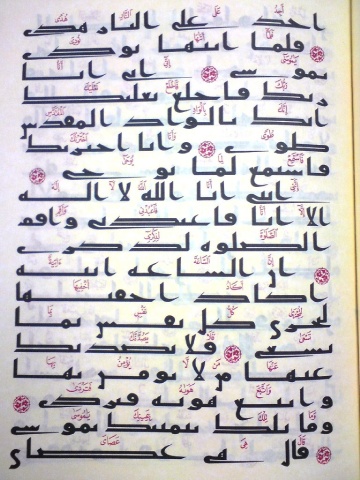 اجد على النار هدى
فلما اتيها نودى
يموسى انى انا
ربك فاخلع نعليك
انك بالواد المقدس
طوى وانا اخترتك
فاستمع لما يوحى
اننى انا الله لا اله
الا انا فاعبدنى واقم
الصلوه لذكرى
ان الساعه اتيه
اكاد اخفيها
لتجزى كل نفس بما
تسعى فلا يصدنك
عنها من لا يومن بها
واتبع هويه فتردى
وما تلك بيمينك يموسى
قال هى عصاى